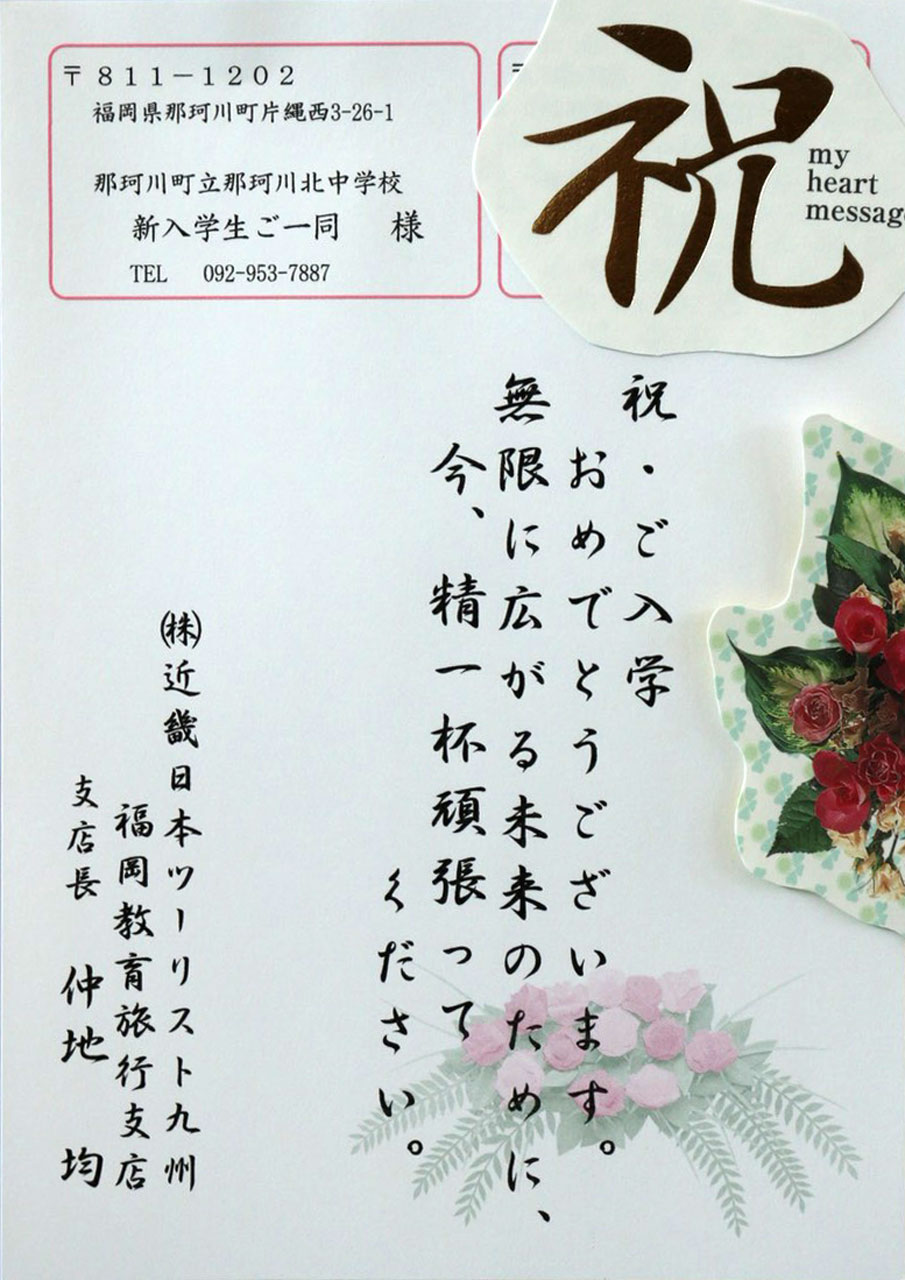 〒811－1202
福岡県那珂川町片縄西3-26-1
那珂川町立那珂川北中学校
新入学生ご一同　様
TEL　092-953-7887
〒
祝
my
heart
message
祝・ご入学
おめでとうございます。
無限に広がる未来のために、
今、精一杯頑張って
ください。
㈱近畿日本ツーリスト九州
福岡教育旅行支店
支店長　仲地　均